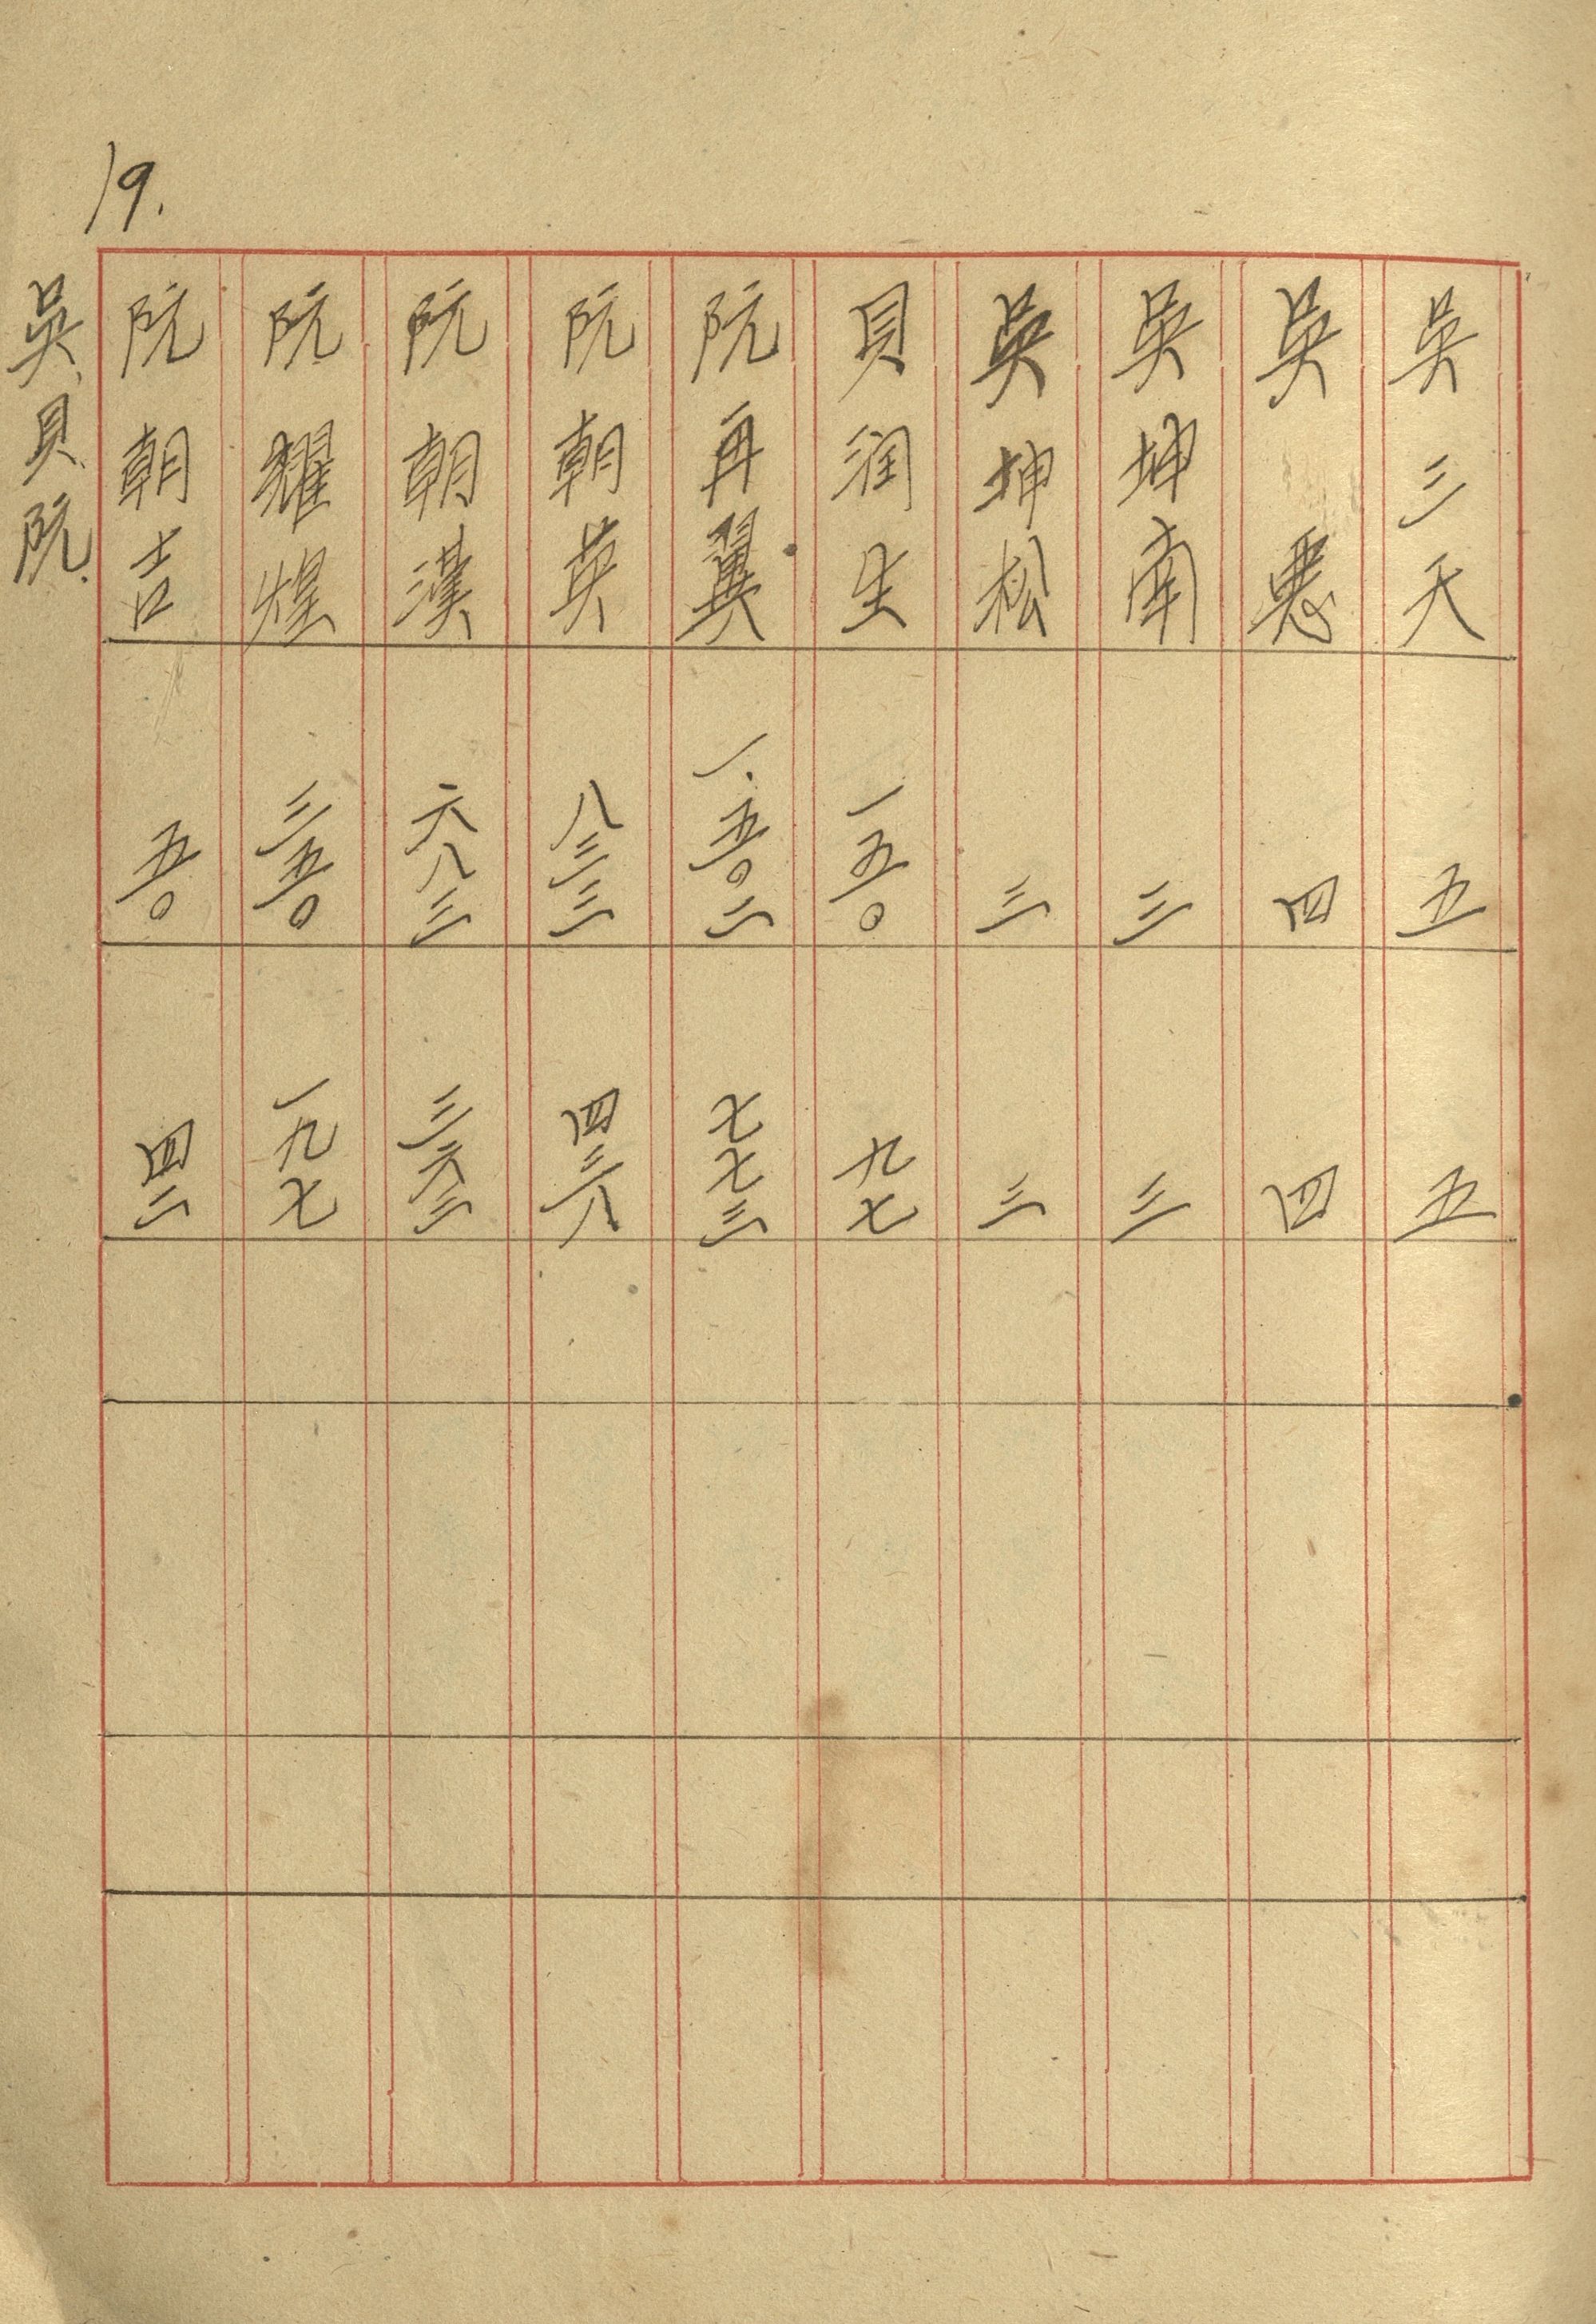 19.
吳三天 五 五
吳 四 四
吳坤南 三 三
吳坤松 三 三
貝润生 一五〇 九七
阮再翼 一.五〇二 七七三
阮朝英 八三三 四三八
阮朝漢 六八三 三六三
阮耀煌 三五〇 一九七
阮朝吉 五〇 四二
吳.貝.阮.